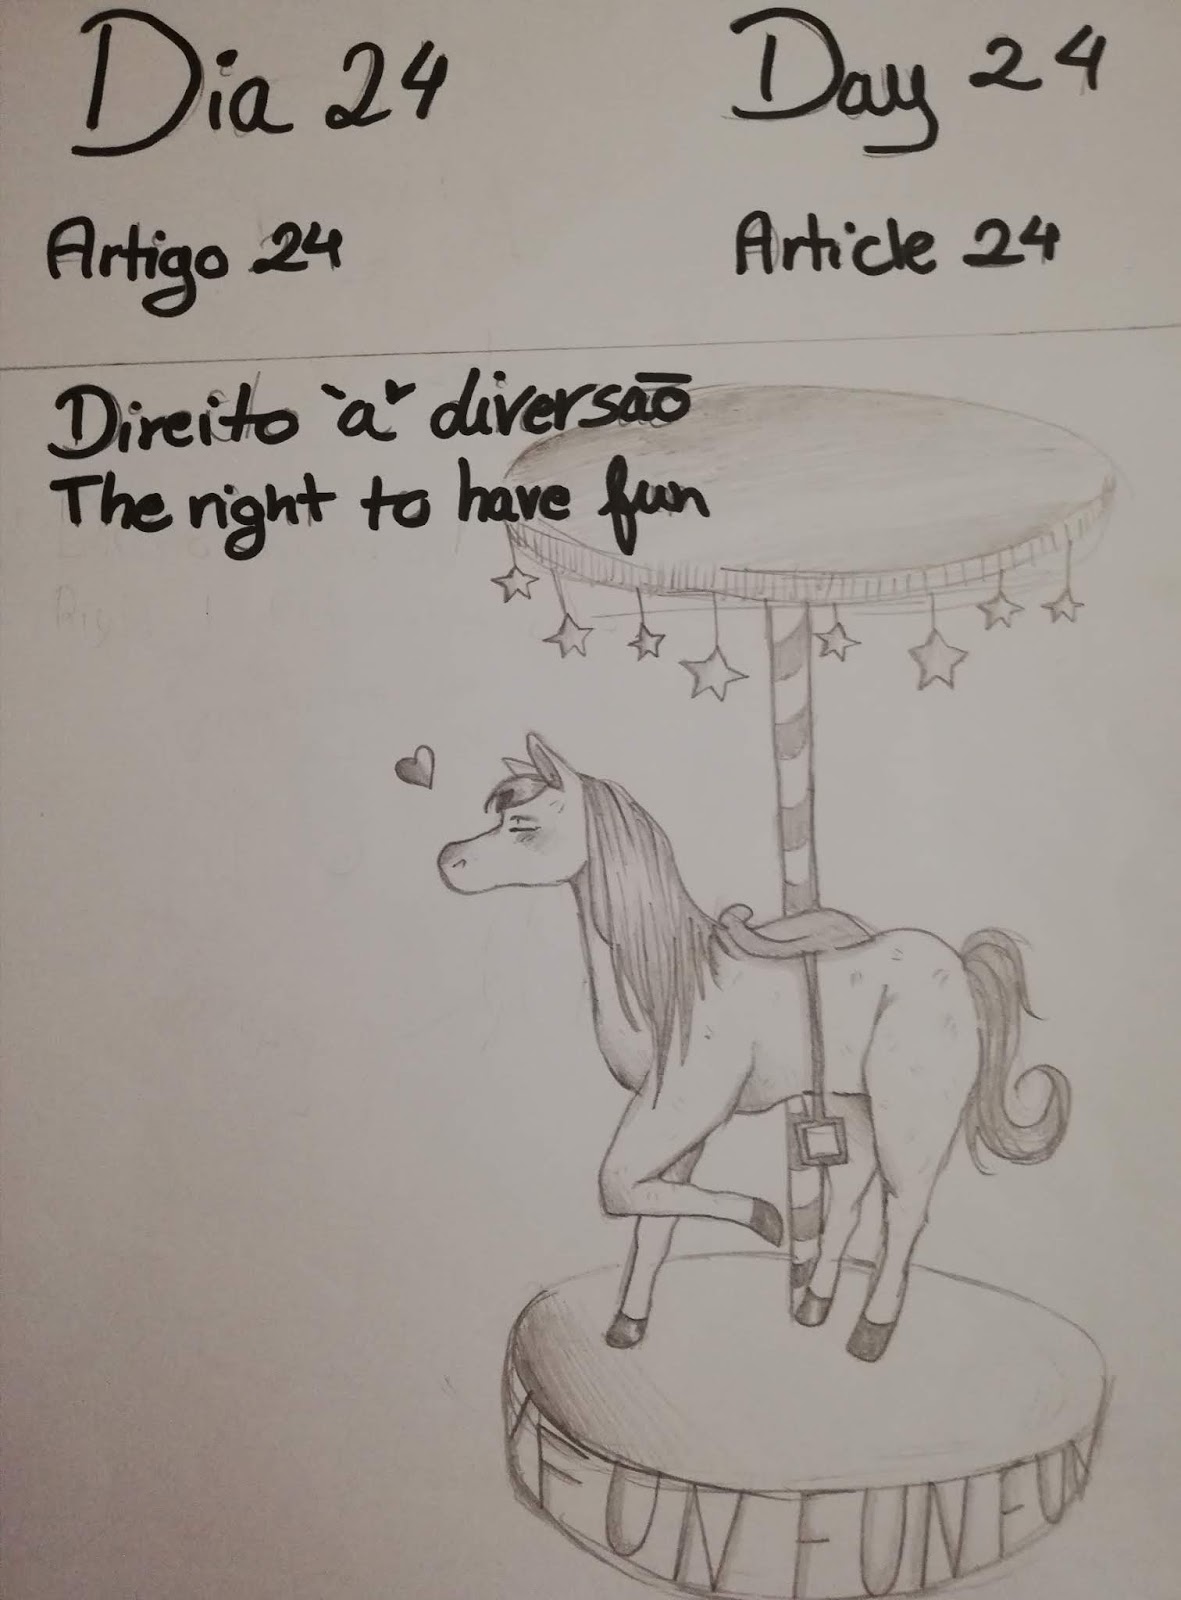 Dia 24
Day 24
Artigo 24
Article 24
Direito à diversão
The right to have fun
FUN FUN FUN